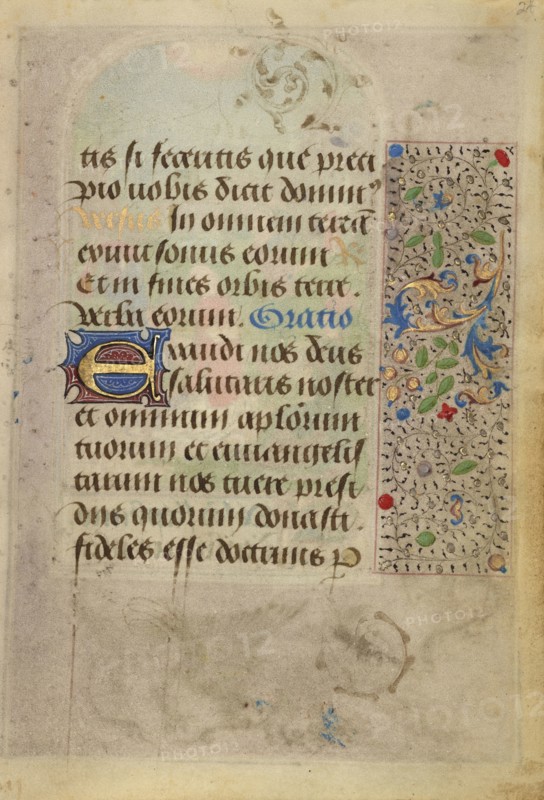 24
tis si feceritis que preci
pio uobis dicit domin⁹
versus In omnem terrā
exiuit sonus eorum R
Et in fines orbis terre.
Verba eorum. Oratio
Exaudi nos deus
salutaris noster
et omnium aplōrum
tuorum et euuangelis
tarum nos tuere presi
diis quorum donasti
fideles esse doctrinis p
PHOTO12
PHOTO12
PHOTO12
PHOTO12
PHOTO12
PHOTO12